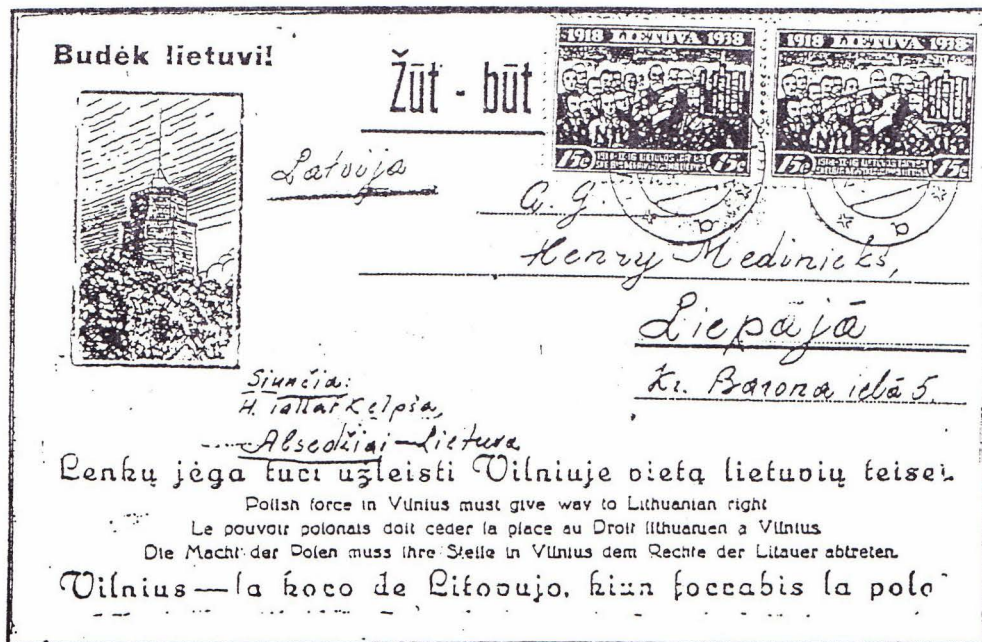 Budėk lietuvi!
Žūt - būt
1918 LIETUVA 1938
1918 LIETUVA 1938
15c 15c
15c 15c
Latvija
G. G.
Henry Medinieks,
Liepājā
Kr. Barona ielā 5.
Siunčia:
H. Kelpša,
Alsedžiai - Lietuva
Lenkų jėga turi užleisti Vilniuje vietą lietuvių teisei.
Polish force in Vilnius must give way to Lithuanian right
Le pouvoir polonais doit céder la place au Droit lithuanien a Vilnius
Die Macht der Polen muss ihre Stelle in Vilnius dem Rechte der Litauer abtreten.
Vilnius — la koro de Litovujo, kiun forrabis la polo